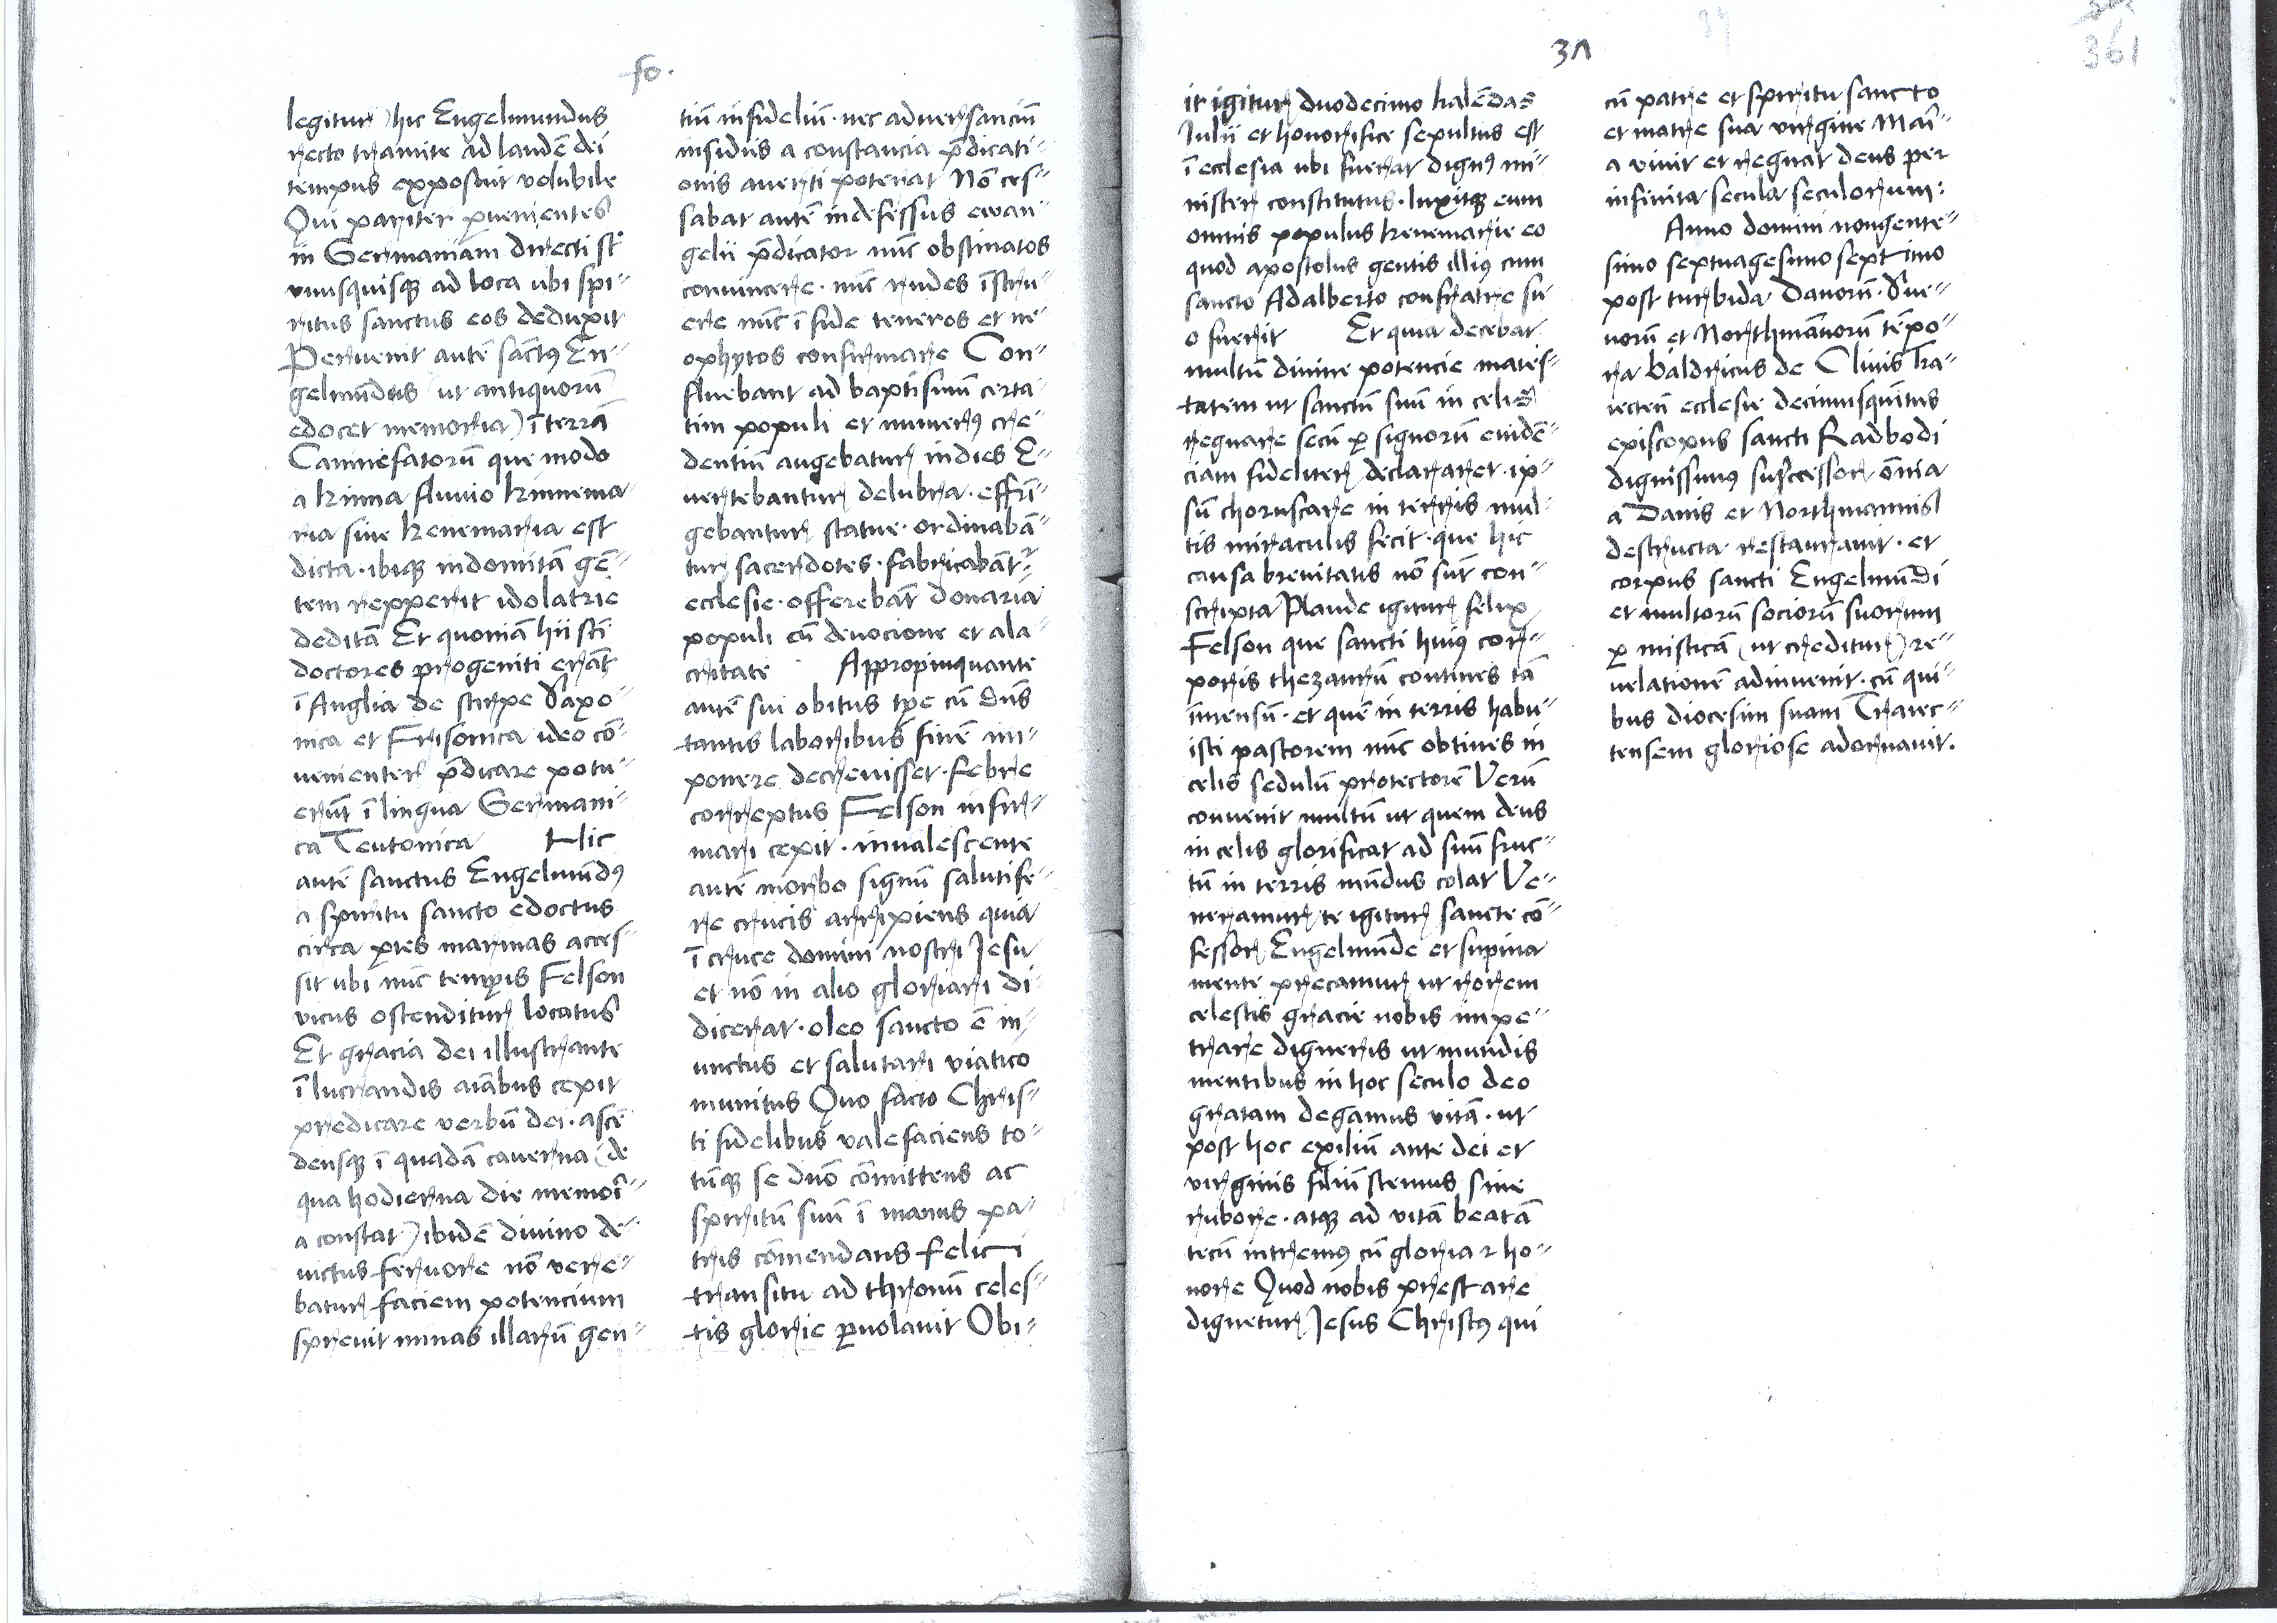 fo.
legitur) hic Engelmundus
recto tramite ad laudē dei
tempus exposuit volubile
Qui pariter ꝑuenientes
in Germaniam directi st̄
vnusquisqꝫ ad loca ubi spi-
ritus sanctus eos deduxit
Peruenit autē sāctꝰ En-
gelmūdus (ut antiquorū
edocet memoria) ī terrā
Caninefatorū que modo
a kinna fluuio kinnema-
ria siue kenemaria est
dicta · ibiqꝫ indomitā gē-
tem repperit idolatrie
deditā Et quoniā hii sci
doctores progeniti erāt
ī Anglia de stirpe Saxo-
nica et Frisonica ideo cō-
uenienter p̄dicare potu-
erūt ī lingua Germani-
ca Teutonica Hic
autē sanctus Engelmūdꝰ
a spiritu sancto edoctus
circa ꝑtes marinas acces-
sit ubi nūc temꝑis Felson
vicus ostenditur locatus
Et gracia dei illustrante
ī lucrandis aīabus cepit
predicare verbū dei · ascē
densqꝫ ī quadā cauerna (de
qua hodierna die memorī-
a constat) ibidē diuino de-
uictus feruore nō vere-
batur faciem potencium
spreuit minas illarū gen-
tiū infideliū · nec aduersanciū
insidiis a constancia p̄dicati-
onis auerti poterat Nō ces-
sabat autē indefessus ewan-
gelii p̄dicator nūc obstinatos
conuincere · nūc rudes īstru-
ere nūc ī fide teneros et ne-
ophytos confirmare Con-
fluebant ad baptismū certa-
tim populi et numerꝰ cre-
dentiū augebatur indies E-
uertebantur delubra · effrī-
gebantur statue · ordinabā-
tur sacerdotes · fabricabāt̄
ecclesie · offerebāt donaria
populi cū deuocione et ala-
critate Appropinquante
autē sui obitus tꝑe cū dn̄s
tantis laboribus finē im-
ponere decreuisset · febre
correptus Felson infir-
mari cepit · inualescente
autē morbo signū salutife-
re crucis arripiens quia
ī cruce domini nostri Jesu
et nō in alio gloriari di-
dicerat · oleo sancto ē in-
unctus et salutari viatico
munitus Quo facto Chris-
ti fidelibus vale faciens to-
tūqꝫ se dn̄o cōmittens ac
spiritū suū ī manus pa-
tris cōmendans felici
transitu ad thronū celes-
tis glorie ꝑuolauit Obi-
31
361
it igitur duodecimo kalēdas
Julii et honorifice sepultus est
ī ecclesia ubi fuerat dignꝰ mi-
nister constitutus · luxitqꝫ eum
omnis populus kenemarie eo
quod apostolus gentis illiꝰ cum
sancto Adalberto confratre su-
o fuerit Et quia decebat
multū diuine potencie maies-
tatem ut sanctū suū in celis
regnare secū ꝑ signorū euidē-
ciam fideliter declararet · ip-
sū choruscare in terris mul-
tis miraculis fecit · que hic
causa breuitatis nō sūt con-
scripta Plaude igitur felix
Felson que sancti huiꝰ cor-
poris thezaurū contines tā
īmensū · et quē in terris habu-
isti pastorem nūc obtines in
celis sedulū protectorē Verū
conuenit multū ut quem deus
in celis glorificat ad suū fruc-
tū in terris mūdus colat Ve-
neramur te igitur sancte cō-
fessor Engelmūde et supina
mente precamur ut rorem
celestis gracie nobis impe-
trare digneris ut mundis
mentibus in hoc seculo deo
gratam degamus vitā · ut
post hoc exiliū ante dei et
virginis filiū stemus sine
rubore · atqꝫ ad vitā beatā
tecū intremꝰ cū gloria ⁊ ho-
nore Quod nobis prestare
dignetur Jesus Christꝰ qui
cū patre et spiritu sancto
et matre sua virgine Marī-
a viuit et regnat deus per
infinita secula seculorum:
Anno domini nongente-
simo septuagesimo septimo
post turbida Danorū · Sue-
uorū et Northmānorū tēpo-
ra Baldricus de Cliuis tra-
iecteñ ecclesie decimusquītus
episcopus sancti Radbodi
dignissimꝰ successor om̄ia
a Danis et Northmannis
destructa restaurauit · et
corpus sancti Engelmūdi
et multorū sociorū suorum
ꝑ misticā (ut creditur) re-
uelationē adinuenit · cū qui-
bus diocesim suam Traiec-
tensem gloriose adornauit.